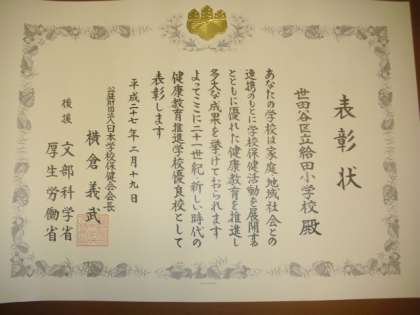 表彰状
世田谷区立給田小学校殿
あなたの学校は家庭地域社会との
連携のもとに学校保健活動を展開する
とともに優れた健康教育を推進し
多大な成果を挙げておられます
よってここに二十一世紀・新しい時代の
健康教育推進学校優良校として
表彰します
平成二十七年二月十九日
公益財団法人日本学校保健会会長
横倉義武
後援 文部科学省
厚生労働省